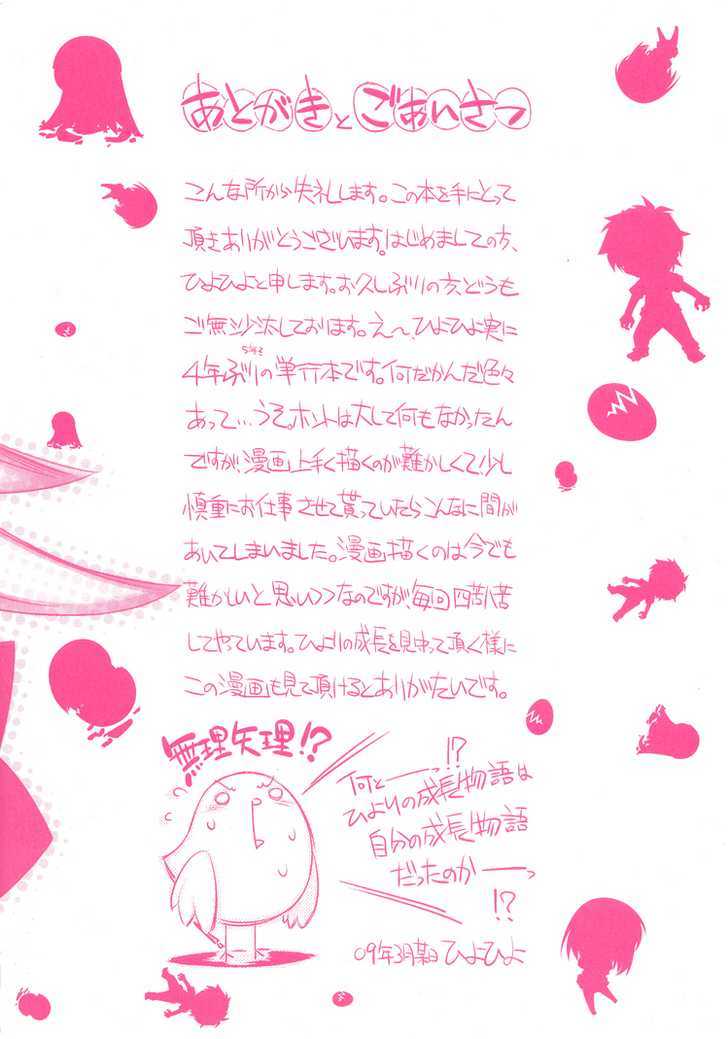 あとがきとごあいさつ
こんな所から失礼します。この本を手にとって
頂きありがとうございます。はじめましての方、
ひよひよと申します。お久しぶりの方、どうも
ご無沙汰しております。え〜、ひよひよ実に
4年ぶりの単行本です。何だかんだ色々
あって…うそ。ホントは大して何もなかったん
ですが、漫画上手く描くのが難かしくて、少し
慎重にお仕事させて貰っていたらこんなに間が
あいてしまいました。漫画描くのは今でも
難かしいと思いつつなのですが毎回四苦八苦
してやっています。ひよりの成長を見守って頂く様に
この漫画も見て頂けるとありがたいです。
無理矢理!?
何とーーっ!?
ひよりの成長物語は
自分の成長物語
だったのかーーっ
!?
09年3月某日 ひよひよ